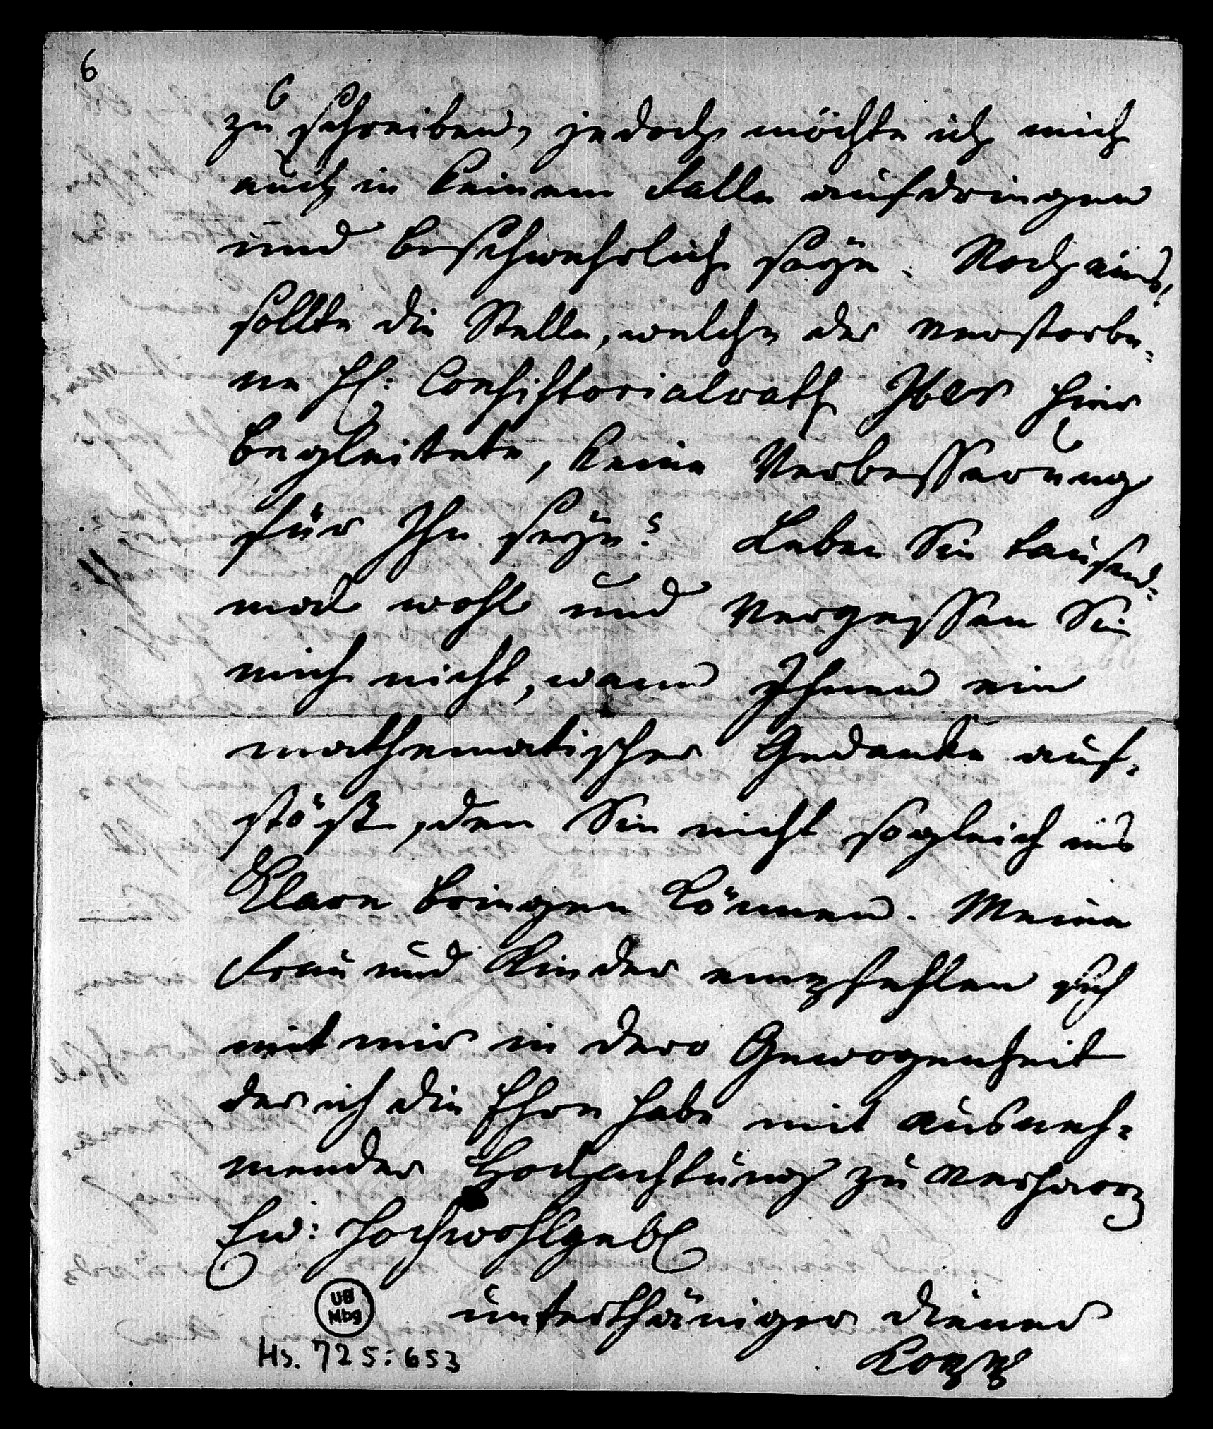 6
zu schreiben, jedoch möchte ich mich
auch in keinem Falle aufdringen
und beschwehrlich seÿn. Noch eins!
sollte die Stelle, welche der verstorbe-
ne H: Consistorialrath hier
begleitete, keine Verbesserung
für Ihn seÿn? Leben Sie tausend-
mal wohl und vergessen Sie
mich nicht, wenn Ihnen ein
mathematischer Gedanke auf-
stößt, den Sie nicht sogleich ins
Klare bringen können. Meine
Frau und Kinder empfehlen sich
mit mir in dero Gewogenheit
der ich die Ehre habe mit ausneh-
mender Hochachtung zu verharren
Ew: Hochwohlgeb
unterthäniger Diener
UB
Mbg
Hs. 725:653